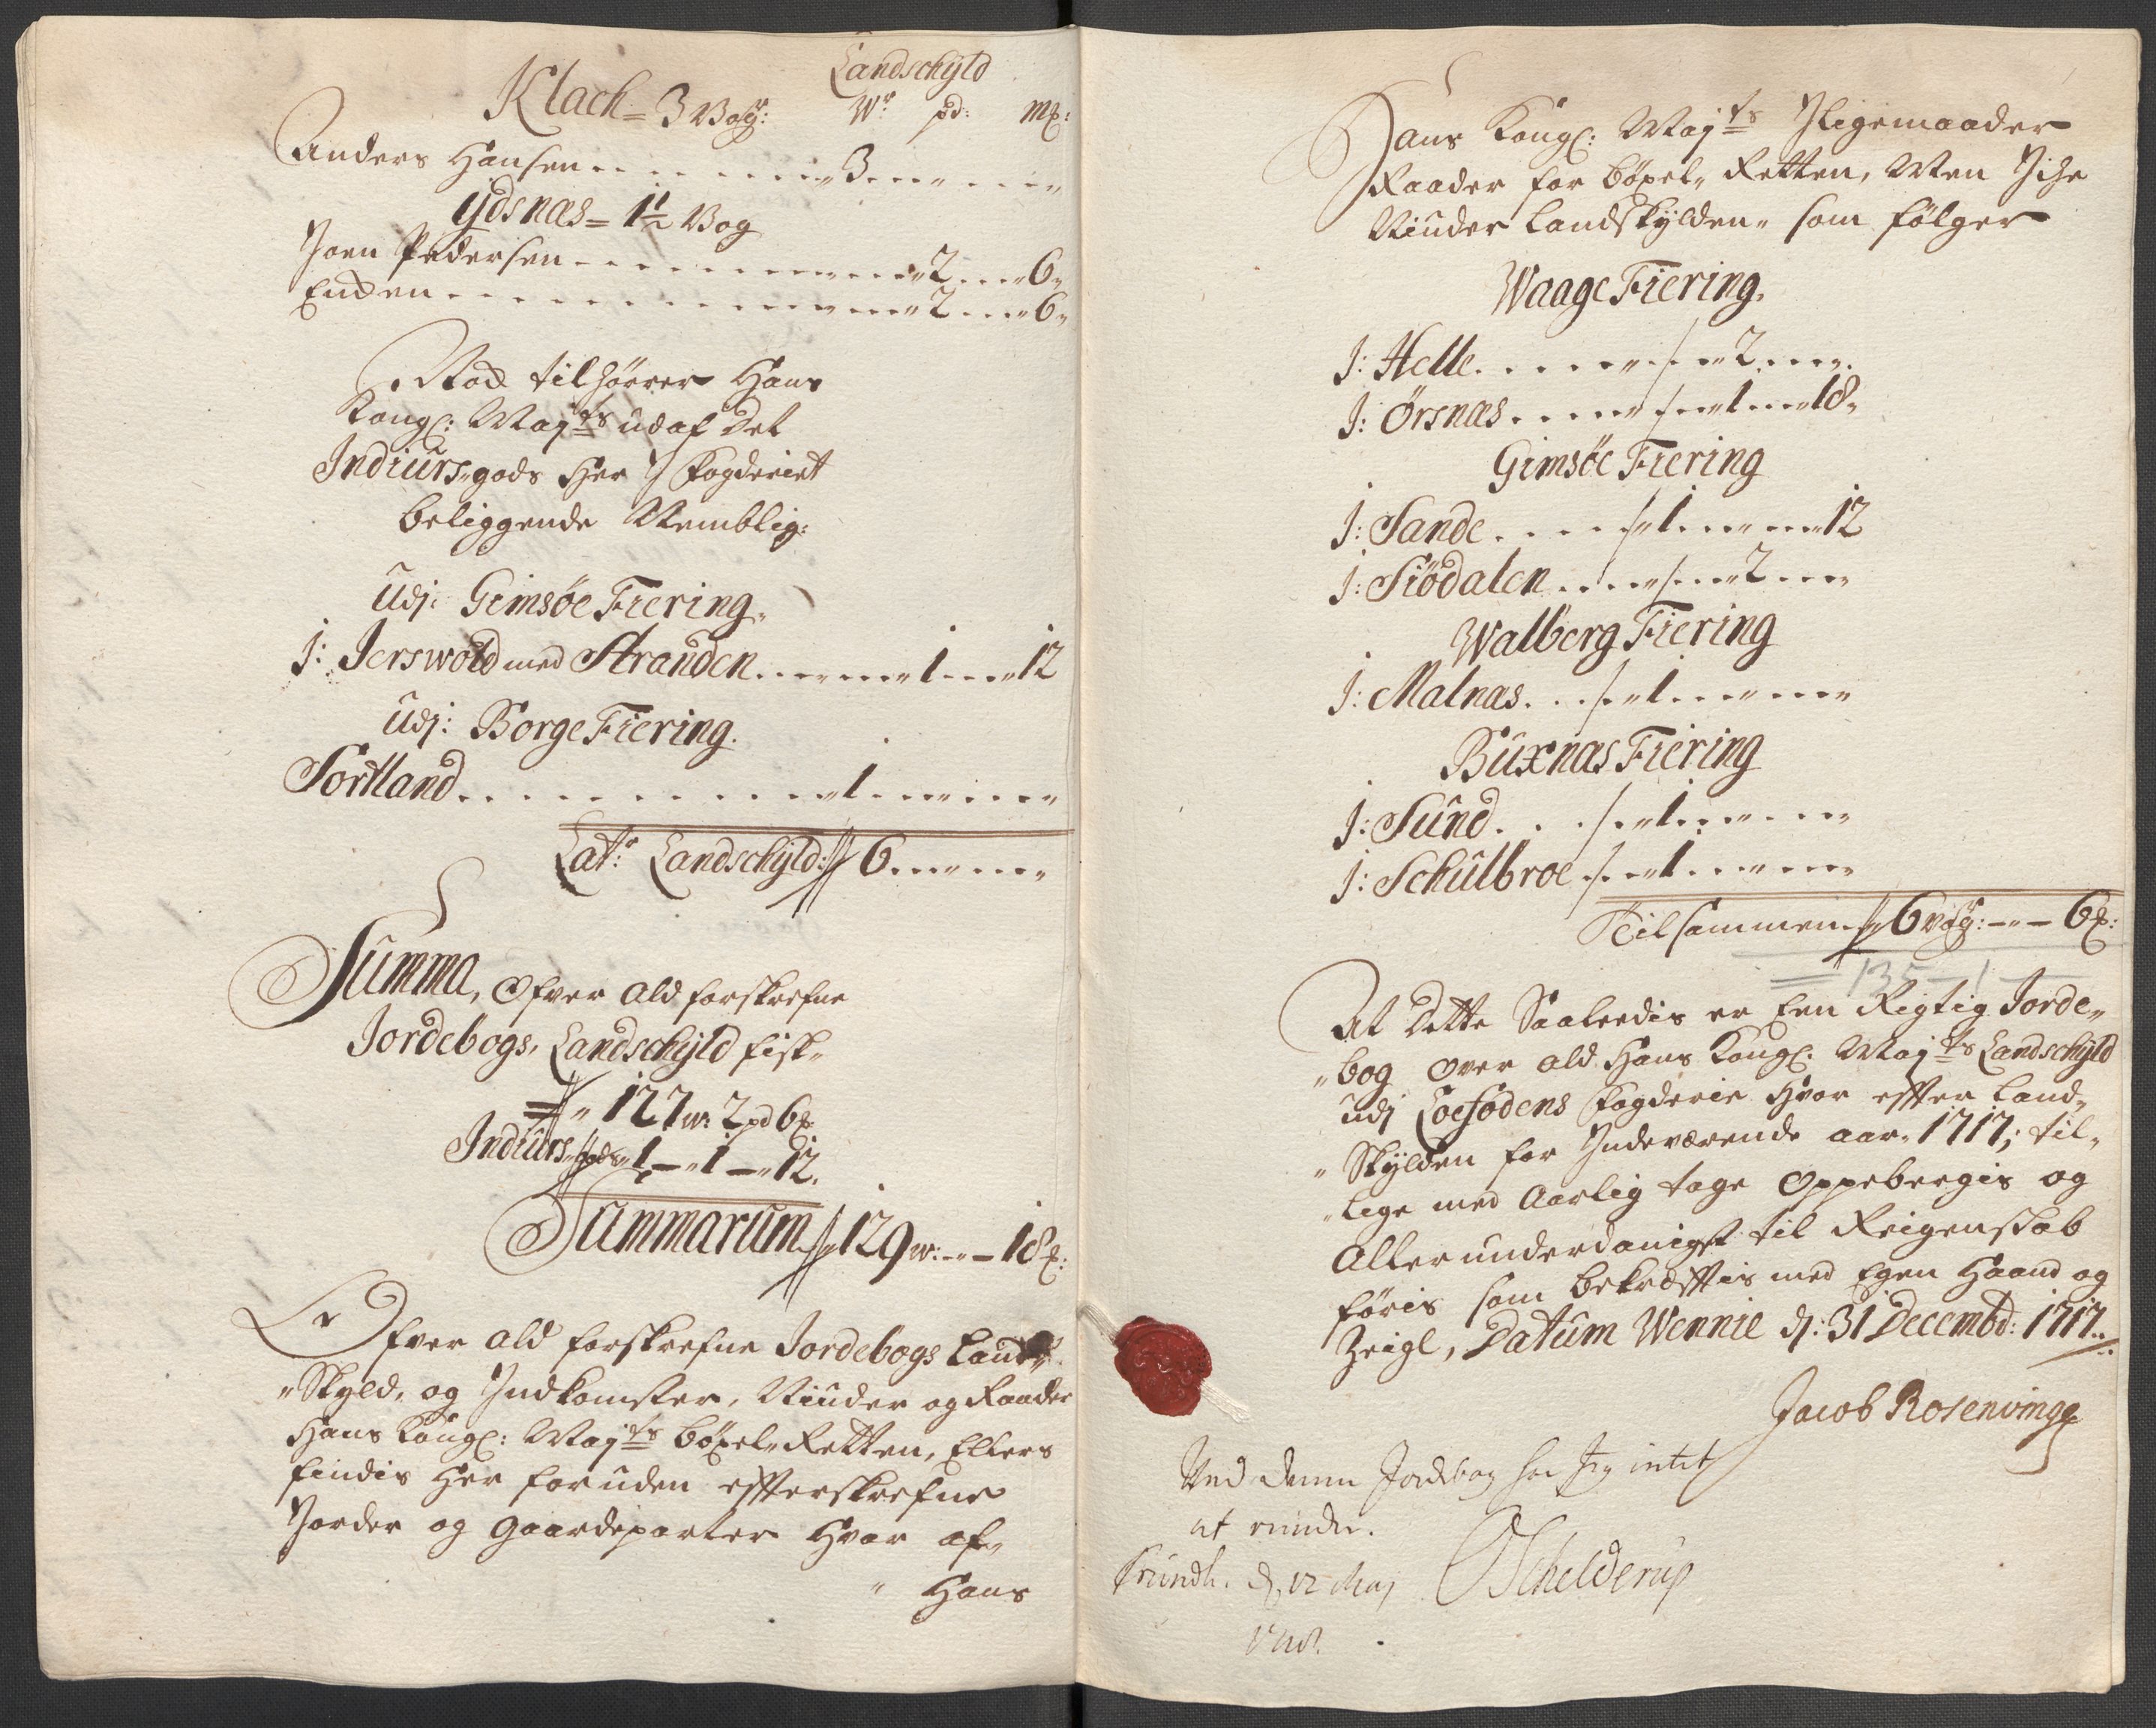 Landschÿld
Klach = 3 Vog: Wr pd: m&:
Anders Hansen . . . . . . . . 3 . . . . . .
Ydsnæs = 1½ Vog
Joen Pedersen . . . . . . . . . . 2 . . . 6
Enden . . . . . . . . . . . . 2 . . . 6
Noch tilhörer Hans
Kongl: Majts udaf Det
Indiurs gods Her J fogderiet
beliggende Nemblig:
Udj: Gimsöe Fiering
J: Jerswold med Stranden . . . . . . 1 . . . 12
Udj: Borge Fiering.
Sortland . . . . . . . . . . 1 . . . . . .
Latr Landschÿld: 6 . . . . . .
Summa, Ofver ald forskrefne
Jordebogs, Landschÿld fisk
127 w: 2 pd 6 &
Indiurs gods 1 – 1 – 12.
Summarum 129 w: – – 18 &:
Ofver ald forskrefne Jordebogs Land
Skyld, og Indkomster, Niuder og Raader
Hans Kongl: Majts böxel Retten, Ellers
findis her foruden efferskrefne
Jorder og gaardeparter hvor af
Hans
Hans Kongl: Majts Jligemaader
Raader for böxel Retten, Men Iche
Niuder Landskylden som fölger
Waage Fiering.
J: Helle . . . . . . . 2 . . . .
J: Örsnæs . . . . . . 1 . . . 18
Gimsöe Fiering
J: Sande . . . . . 1 . . . . . 12
J: Siödalen . . . . . . 2 . . . .
Walberg Fiering
J: Malnæs . . . . 1 . . . . . .
Buxnæs Fiering
J: Sund . . . . 1 . . . . . .
J: Schulbroe . . . 1 . . . . . .
Tilsammen 6 vog: – – 6 &:
135 – 1 –
At Dette Saaledis er Een Rigtig Jorde
bog over ald Hans Kongl: Majts Landschÿld
udj Loefodens fogderie hvor effter Land
Skÿlden for Indeværende aar 1717; til
lige med Aarlig tage Oppebergis og
Allerunderdanigst til Reigenskab
föris som bekræfftis med Egen Haand og
Zeigl, Datum Wennie d: 31 Decembd: 1717.
Jacob Rosenvinge
Ved denne Jordebog har Jeg intet
at erindre.
Trundh. d. 12 May
1718.
OSchelderup